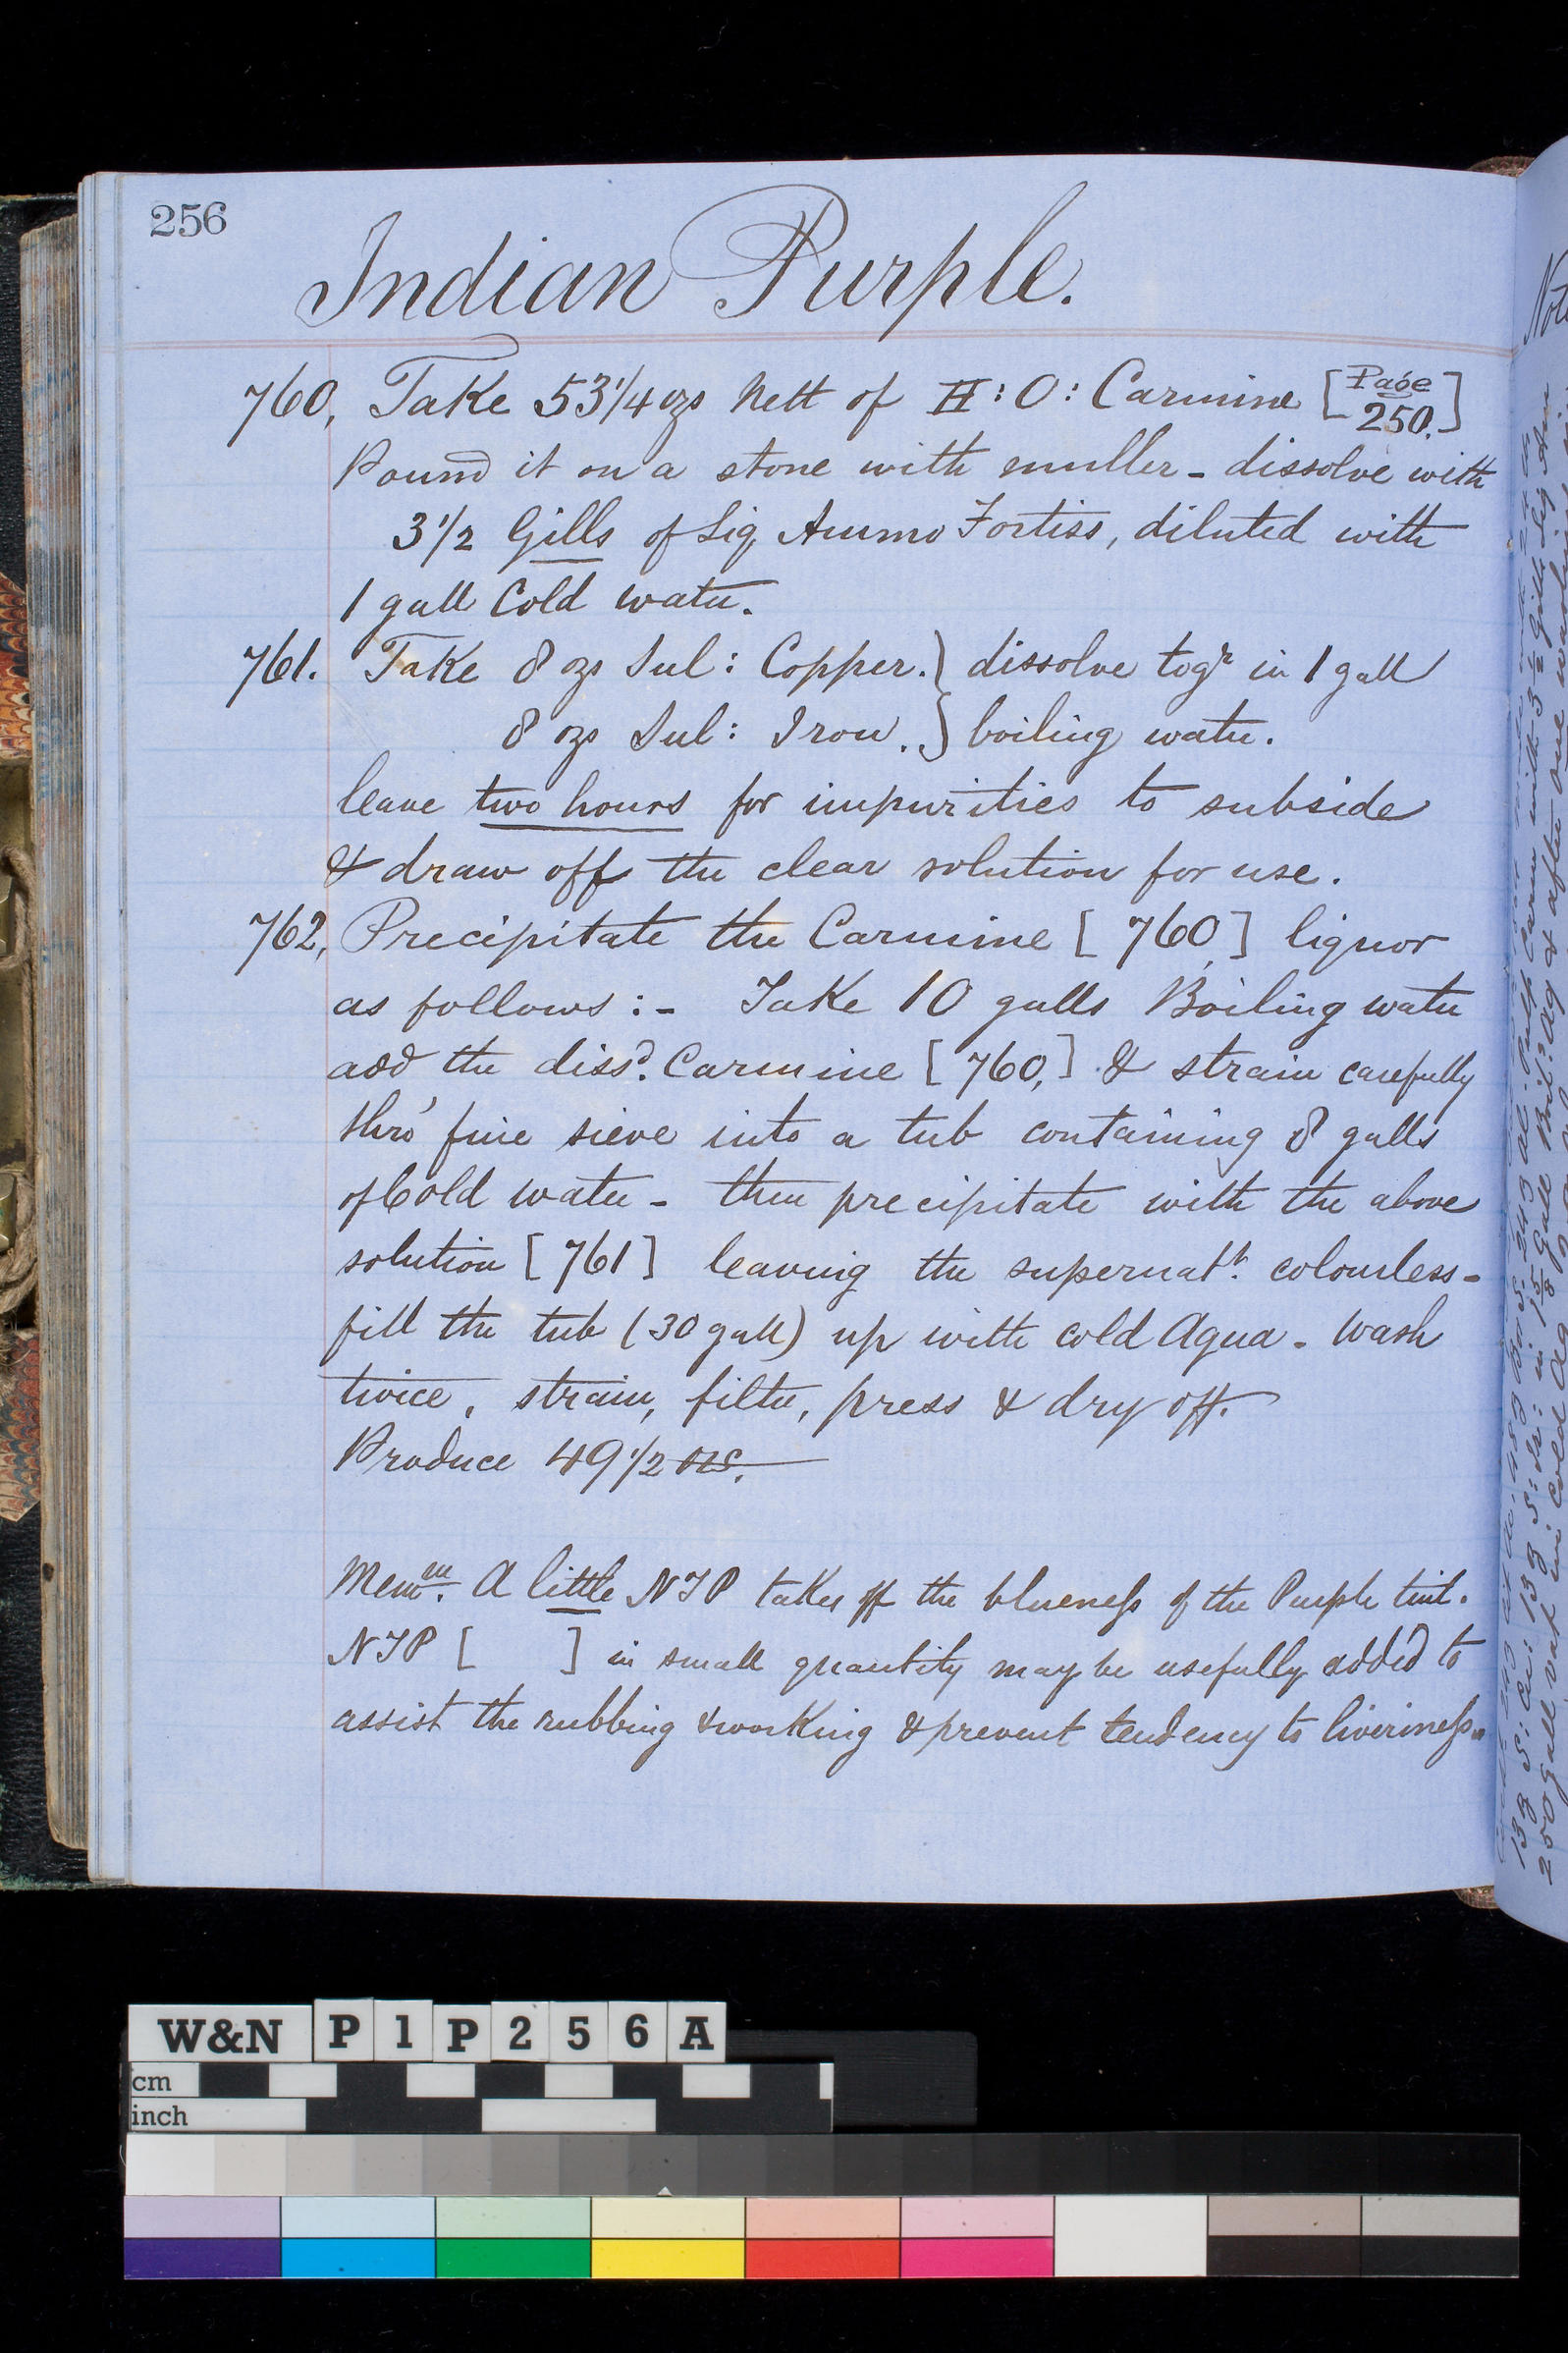 256
Indian Purple.
760, Take 53 1/4 ozs Nett of H : O : Carmine [Page 250.]
Pound it on a stone with muller - dissolve with
3 1/2 Gills of Liq Ammo Fortiss, diluted with
1 gall Cold water.
761. Take 8 ozs Sul : Copper. } dissolve togr in 1 gall
8 ozs Sul : Iron. } boiling water.
leave two hours for impurities to subside
& draw off the clear solution for use.
762, Precipitate the Carmine [ 760, ] liquor
as follows :- Take 10 galls Boiling water
add the dissd. Carmine [ 760, ] & strain carefully
thro' fine sieve into a tub containing 8 galls
of Cold water - then precipitate with the above
solution [ 761 ] leaving the supernatt. colourless -
fill the tub (30 gall) up with cold Aqua - Wash
twice, strain, filter, press & dry off.
Produce 49 1/2 ozs.
Memm. A little NTP takes off the blueness of the Purple tint.
NTP [ ] in small quantity may be usefully added to
assist the rubbing & working & prevent tendency to liveriness.
W&N P1P256A
cm
inch